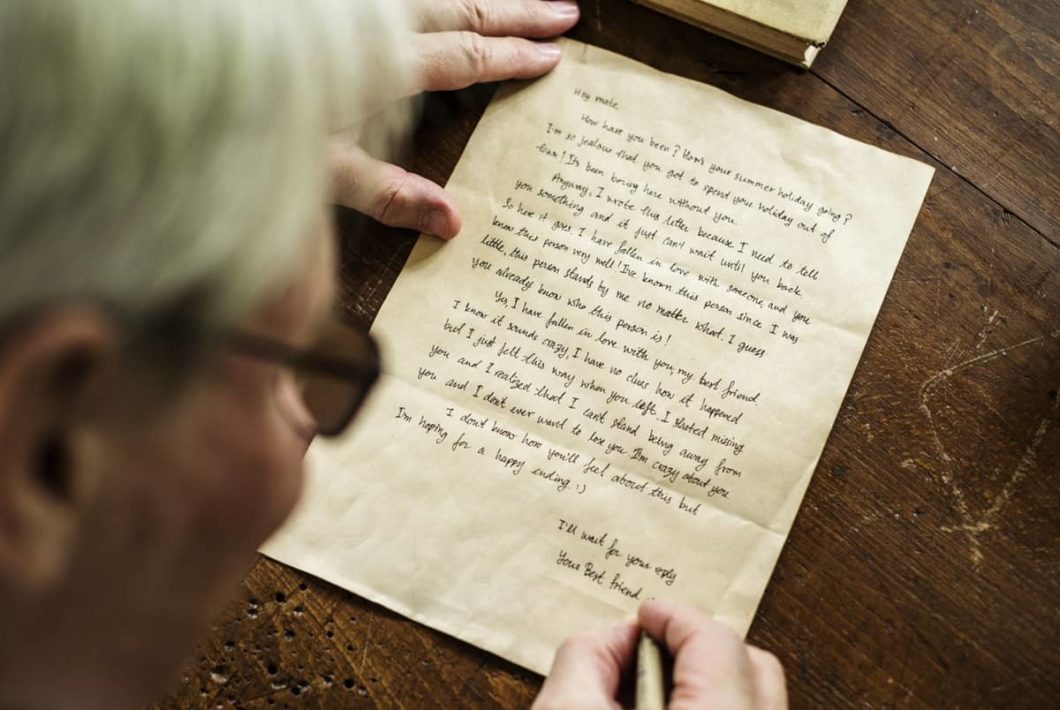 Hey mate,
How have you been? How's your summer holiday going?
I'm so jealous that you got to spend your holiday out of
town! Its been boring here without you.
Anyway, I wrote this letter because I need to tell
you something and it just can't wait until you back.
So here it goes, I have fallen in love with someone, and you
know this person very well! I've known this person since I was
little, this person stands by me no matter what. I guess
you already know who this person is!
Yes, I have fallen in love with you my best friend.
I know it sounds crazy, I have no clues how it happened
but I just felt this way when you left. I started missing
you and I realized that I can't stand being away from
you and I don't ever want to lose you I'm crazy about you
I don't know how you'll feel about this but
I'm hoping for a happy ending :)
I'll wait for your reply
Your Best friend